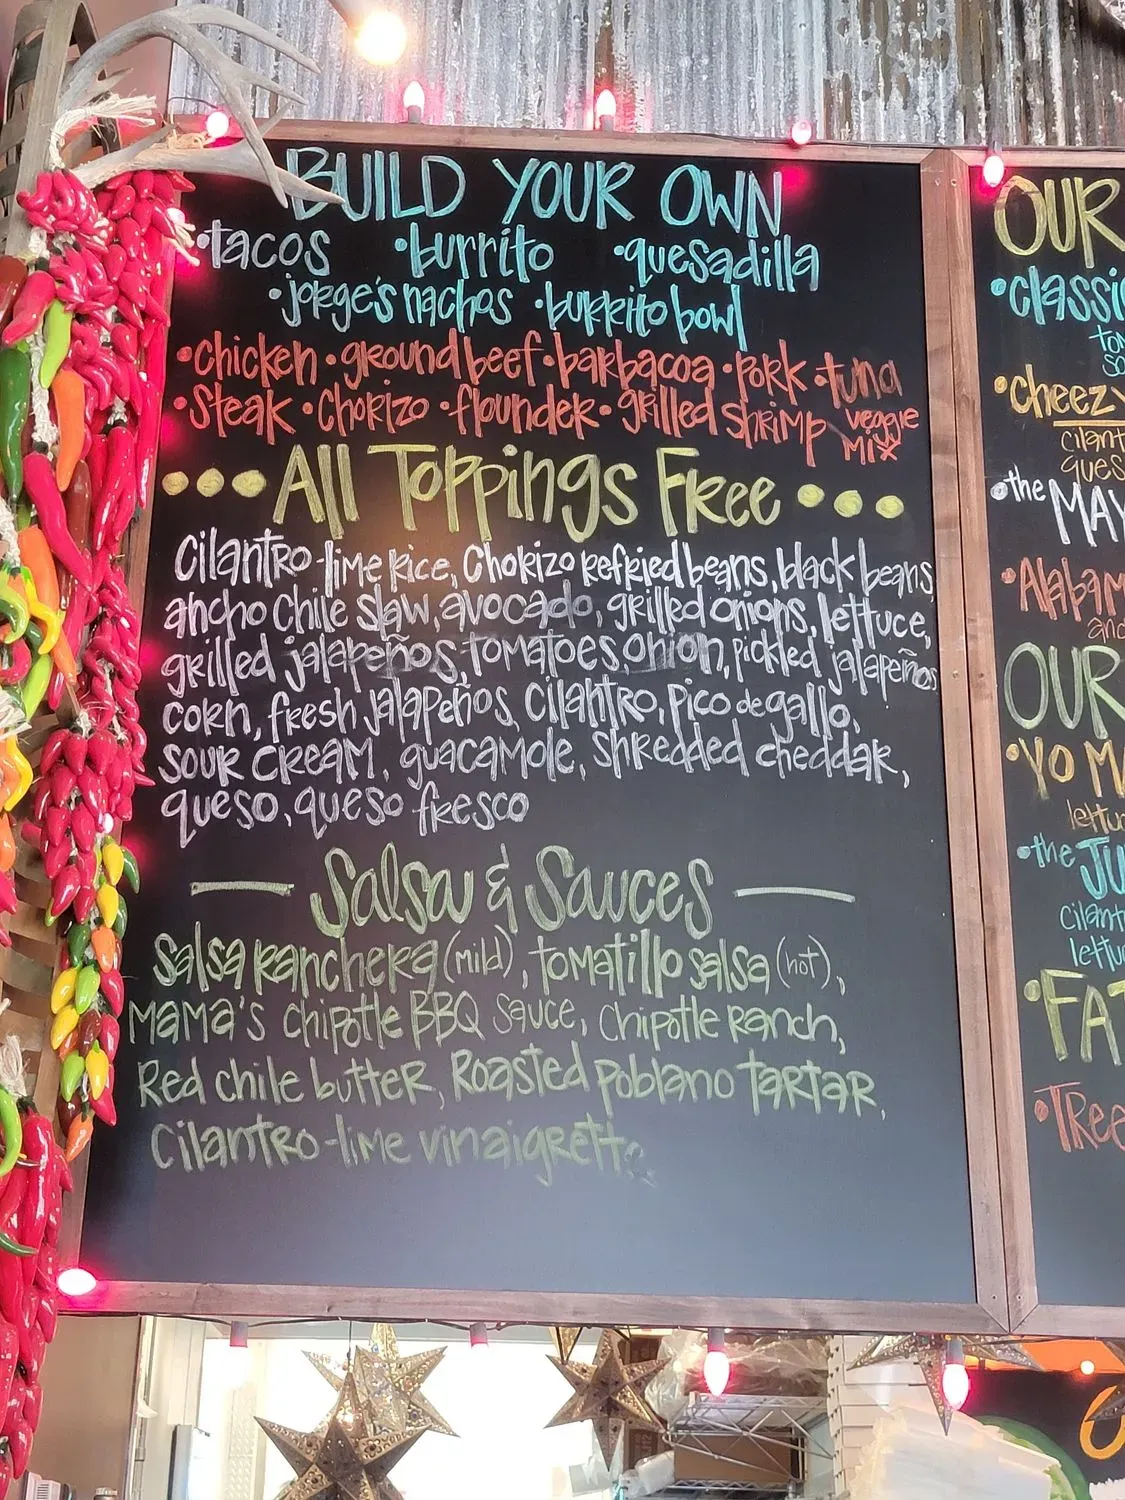 BUILD YOUR OWN
•tacos •burrito •quesadilla
•jorge's nachos •burrito bowl
•chicken •ground beef •barbacoa •pork •tuna
•steak •chorizo •flounder •grilled shrimp veggie
mix
••• All Toppings Free •••
Cilantro-lime rice, Chorizo refried beans, black beans,
ancho chile slaw, avocado, grilled onions, lettuce,
grilled jalapeños, tomatoes, onion, pickled jalapeños
corn, fresh jalapeños, cilantro, pico de gallo,
sour cream, guacamole, shredded cheddar,
queso, queso fresco
— Salsa & Sauces —
Salsa ranchera (mild), tomatillo salsa (hot),
Mama's Chipotle BBQ sauce, Chipotle Ranch,
Red chile butter, Roasted poblano tartar,
Cilantro-lime vinaigrette
OUR
•classic
•cheezy
cilant
ques
•the MAY
•Alabam
and
OUR
•YO MA
lettuc
•the JU
Cilant
lettu
•FAT
•TREE